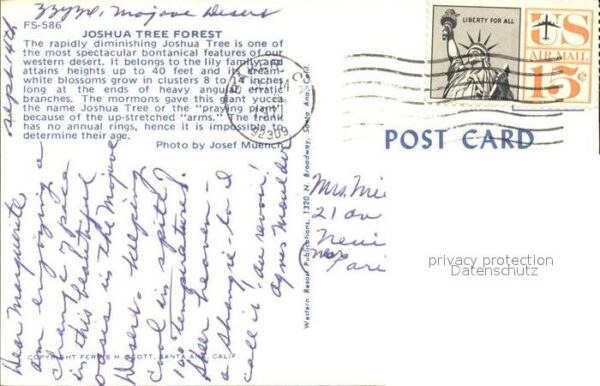 Zzyzx, Mojave Desert
Sept 14th
FS-586
JOSHUA TREE FOREST
The rapidly diminishing Joshua Tree is one of
the most spectacular bontanical features of our
western desert. It belongs to the lily family and
attains heights up to 40 feet and its cream-
white blossoms grow in clusters 8 to 14 inches
long at the ends of heavy angular erratic
branches. The mormons gave this giant yucca
the name Joshua Tree or the "praying plant"
because of the up-stretched "arms." The trunk
has no annual rings, hence it is impossible to
determine their age.
Photo by Josef Muench
Dear Marguerite
am enjoying a
change of pace
in this beautiful
oasis in the Mojave
Desert - keeping
cool in spite of
100° temperatures!
Sheer heaven -
a Shangri-la I
call it, au revoir!
Agnes Moulder
COPYRIGHT FERRIS H. SCOTT, SANTA ANA, CALIF.
Western Resort Publications, 1320 N. Broadway, Santa Ana, Calif.
LIBERTY FOR ALL
US
AIR MAIL
15¢
92309
POST CARD
Mrs.
21
privacy protection
Datenschutz